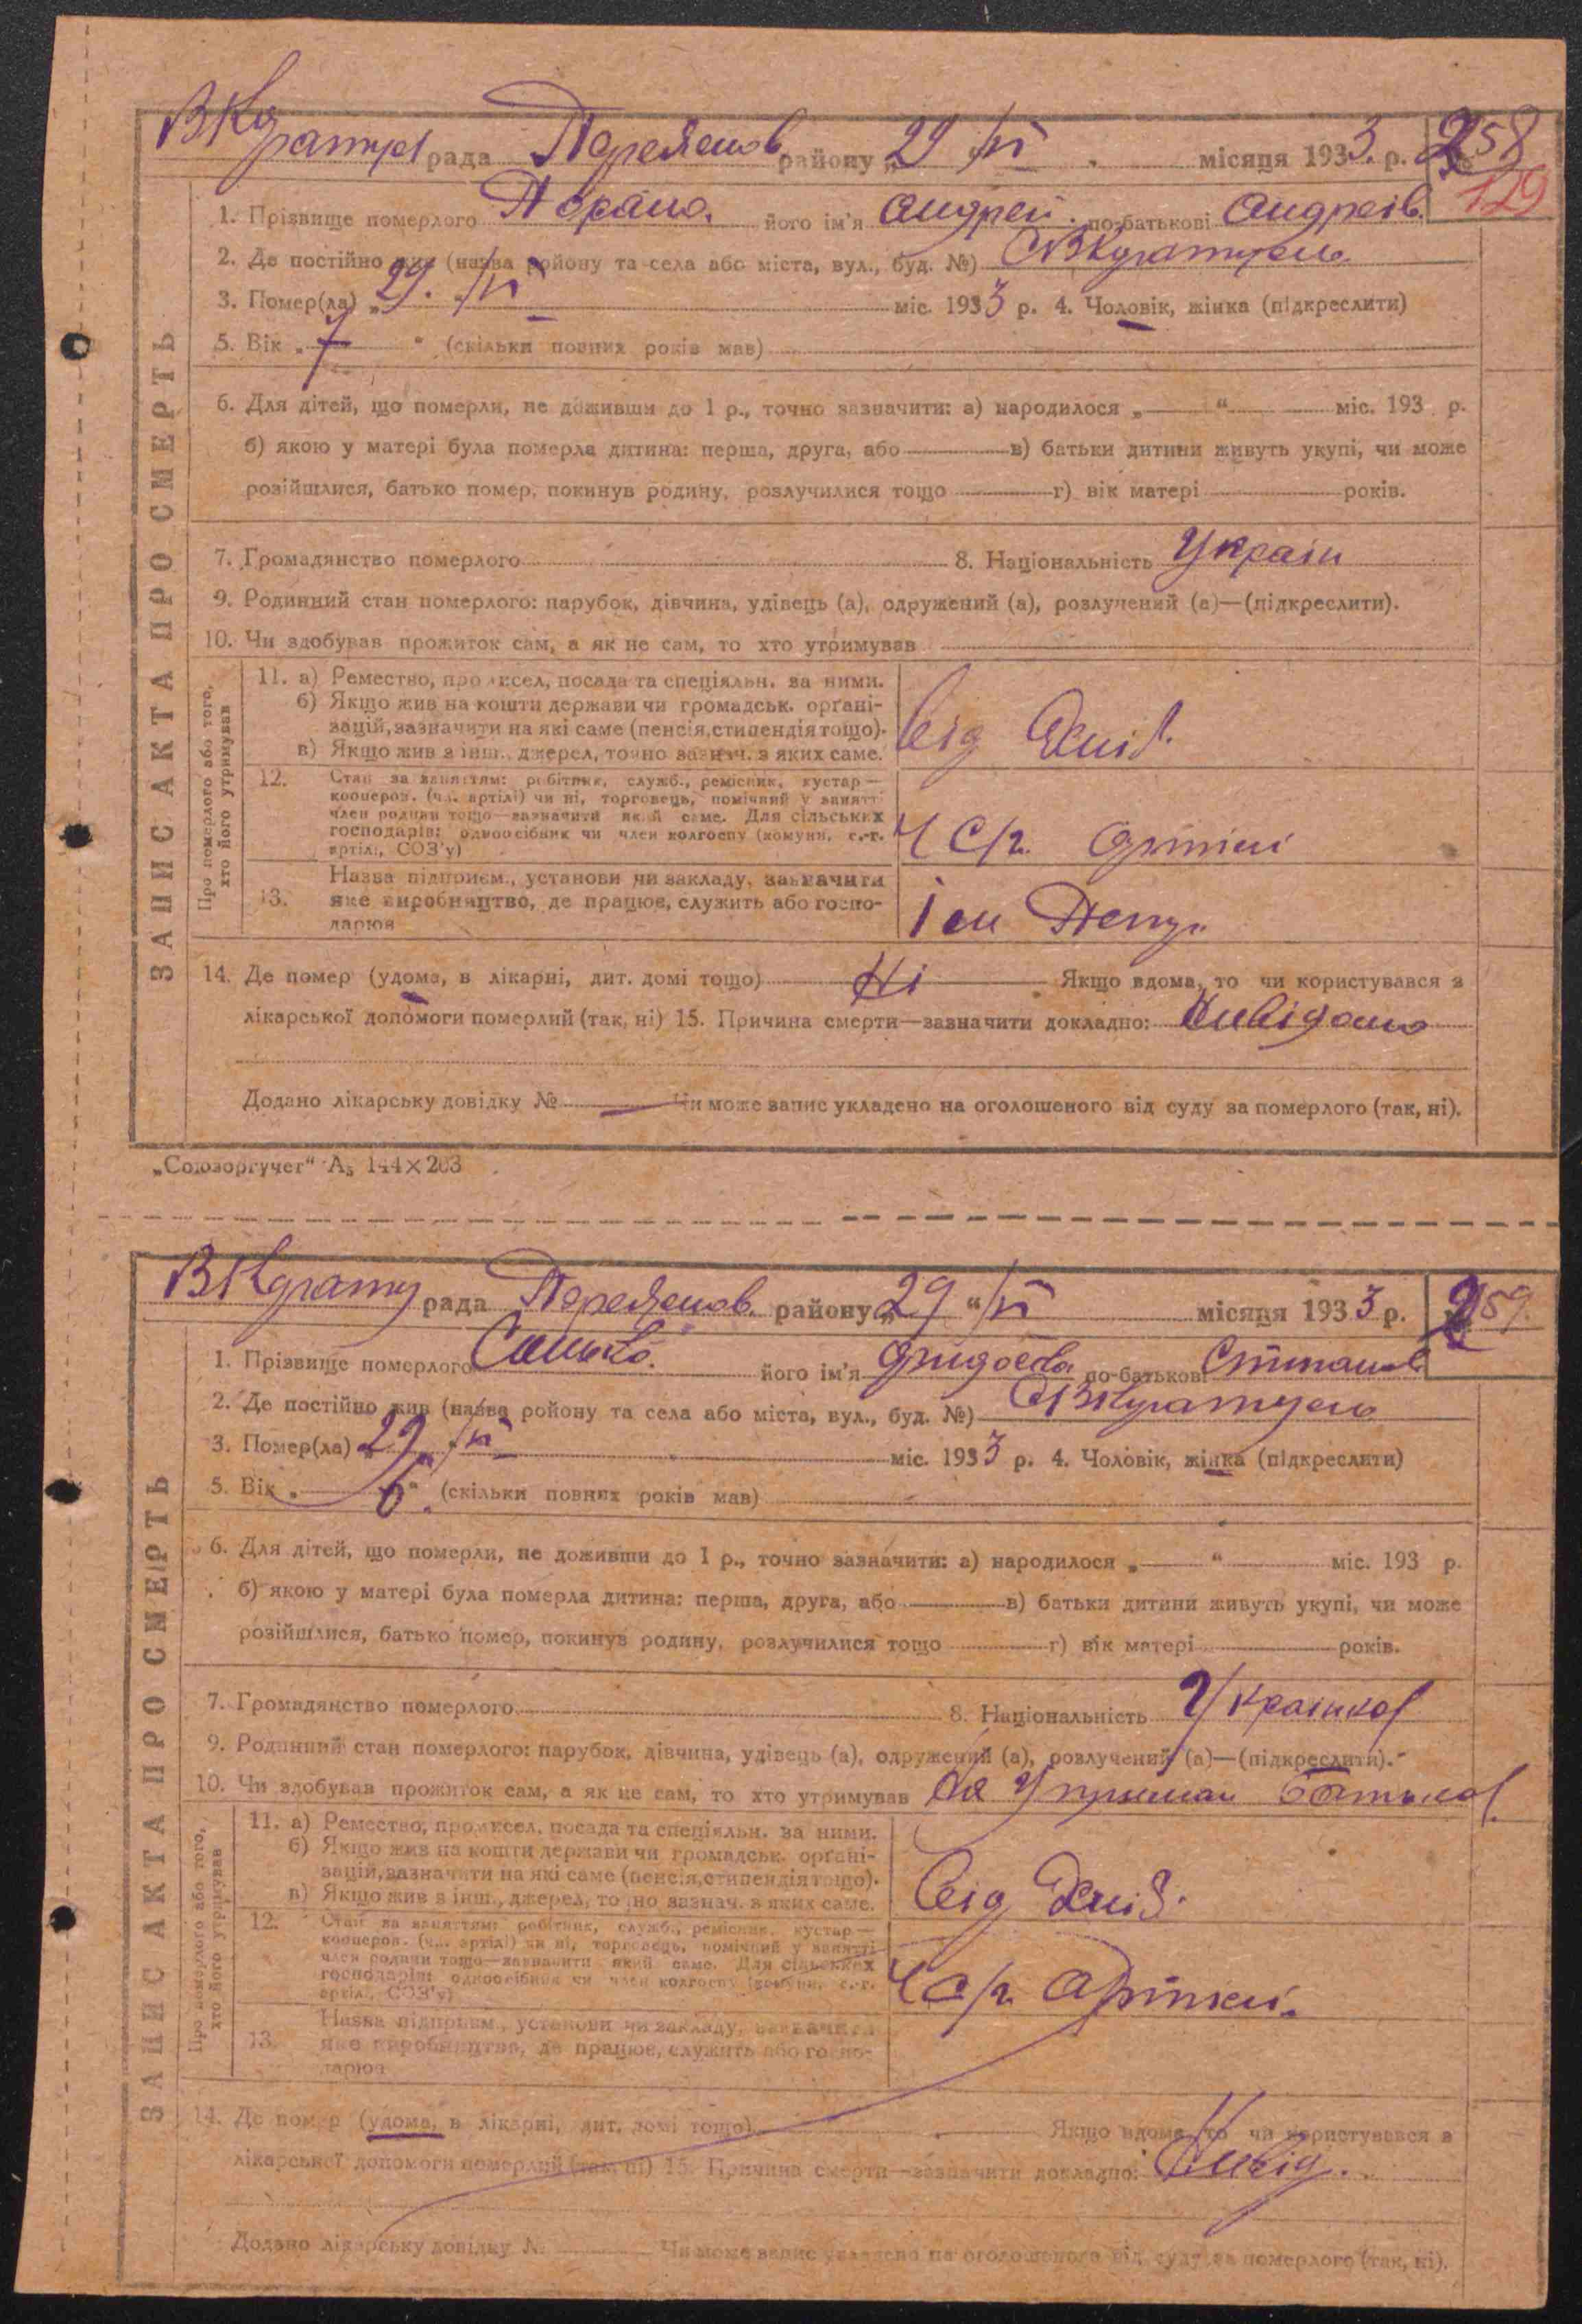 рада Переяслов району „29 "/VI місяця 1933. р. № 258
129
1. Прізвище померлого його ім'я Андрей по-батькові Андреів.
2. Де постійно жив (назва ройону та села або міста, вул., буд. №)
3. Помер(ла) „29. "/VI міс. 1933 р. 4. Чоловік, жінка (підкреслити)
5. Вік „ 7 " (скільки повних років мав)
6. Для дітей, що померли, не доживши до 1 р., точно зазначити: а) народилося „ — " міс. 193 р.
б) якою у матері була померла дитина: перша, друга, або — в) батьки дитини живуть укупі, чи може
розійшлися, батько помер, покинув родину, розлучилися тощо — г) вік матері — років.
7. Громадянство померлого 8. Національність Украін
9. Родинний стан померлого: парубок, дівчина, удівець (а), одружений (а), розлучений (а)—(підкреслити).
10. Чи здобував прожиток сам, а як не сам, то хто утримував
ЗАПИС АКТА ПРО СМЕРТЬ
Про померлого або того, хто його утримував
11. а) Реместно, промисел, посада та спеціяльн. за ними.
б) Якщо жив на кошти держави чи громадськ. орґані-
зацій, зазначити на які саме (пенсія, стипендія тощо).
в) Якщо жив з інш., джерел, точно зазнач. з яких саме.
від
12. Стан за заняттям: робітник, служб., ремісник, кустар—
кооперов. (чл. артілі) чи ні, торговець, помічний у занятті
член родини тощо—зазначити який саме. Для сільських
господарів: одноосібник чи член колгоспу (комуни, с.-г.
артіл., СОЗ'у)
Ч С/г. Артілі
13. Назва підприєм., установи чи закладу, зазначити
яке виробництво, де працює, служить або госпо-
дарює
14. Де помер (удома, в лікарні, дит. домі тощо) Ні Якщо вдома, то чи користувався з
лікарської допомоги померлий (так, ні) 15. Причина смерти—зазначити докладно: Нивідомо
Додано лікарську довідку № — Чи може запис укладено на оголошеного від суду за померлого (так, ні).
„Союзоргучет" А₅ 144×203
рада Переяслов. району „29 "/VI місяця 1933 р. № 259.
1. Прізвище померлого його ім'я по-батькові
2. Де постійно жив (назва ройону та села або міста, вул., буд. №)
3. Помер(ла) „29. "/VI міс. 1933 р. 4. Чоловік, жінка (підкреслити)
5. Вік „ 6 ". (скільки повних років мав)
6. Для дітей, що померли, не доживши до 1 р., точно зазначити: а) народилося „ — " міс. 193 р.
б) якою у матері була померла дитина: перша, друга, або — в) батьки дитини живуть укупі, чи може
розійшлися, батько помер, покинув родину, розлучилися тощо — г) вік матері — років.
7. Громадянство померлого 8. Національність
9. Родинний стан померлого: парубок, дівчина, удівець (а), одружений (а), розлучений (а)—(підкреслити).
10. Чи здобував прожиток сам, а як не сам, то хто утримував
ЗАПИС АКТА ПРО СМЕРТЬ
Про померлого або того, хто його утримував
11. а) Ремество, промисел, посада та спеціяльн. за ними.
б) Якщо жив на кошти держави чи громадськ. орґані-
зацій, зазначити на які саме (пенсія, стипендія тощо).
в) Якщо жив з інш., джерел, точно зазнач. з яких саме.
від
12. Стан за заняттям: робітник, служб., ремісник, кустар—
кооперов. (чл. артілі) чи ні, торговець, помічний у занятті
член родини тощо—зазначити який саме. Для сільських
господарів: одноосібник чи член колгоспу (комуни, с.-г.
артіл., СОЗ'у)
Ч С/г Артілі.
13. Назва підприєм., установи чи закладу, зазначити
яке виробництво, де працює, служить або госпо-
дарює
14. Де помер (удома, в лікарні, дит. домі тощо) Якщо вдома, то чи користувався з
лікарської допомоги померлий (так, ні) 15. Причина смерти—зазначити докладно: Нивід.
Додано лікарську довідку № — Чи може запис укладено на оголошеного від суду за померлого (так, ні).